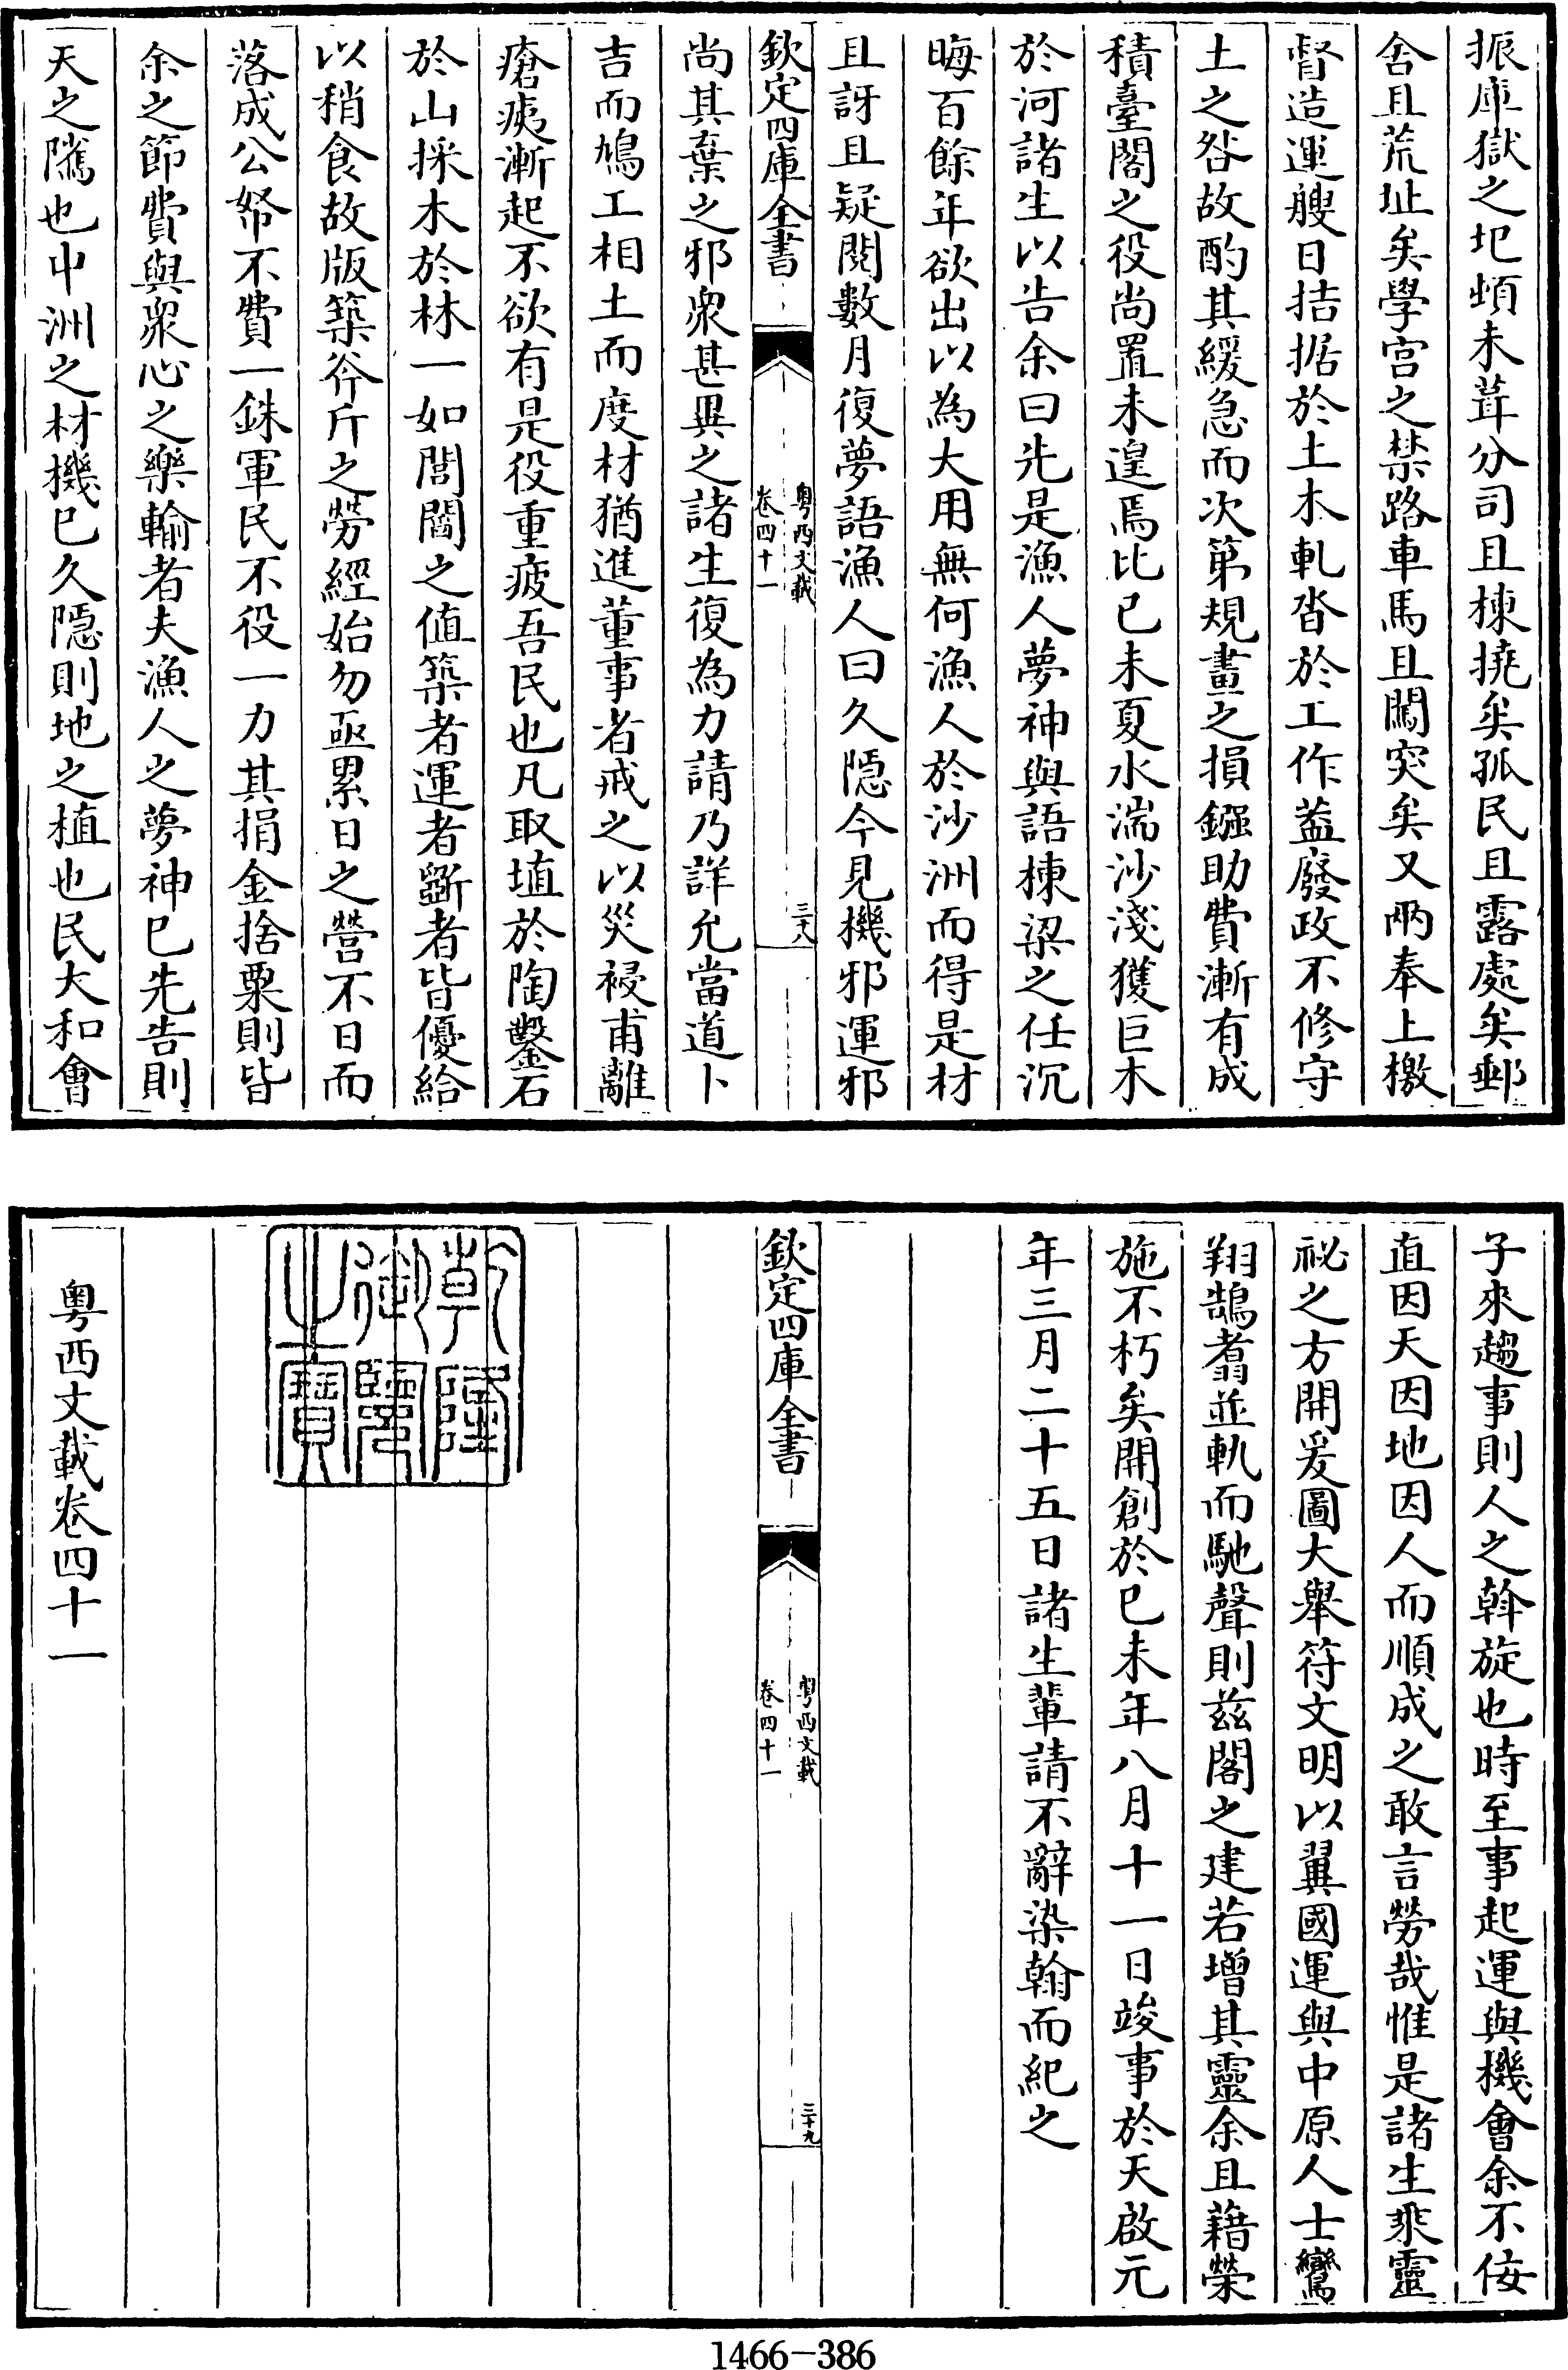 振庫獄之圯頃未葺分司且棟撓矣孤民且露處矣郵
舍且荒址矣學宫之禁路車馬且闖突矣又兩奉上檄
督造運艘日拮据於土木軋沓於工作葢廢政不修守
土之咎故酌其緩急而次第規畫之損鏹助費漸有成
積臺閣之役尚置未遑焉比己未夏水湍沙淺獲巨木
於河諸生以告余曰先是漁人夢神與語棟梁之任沉
晦百餘年欲出以為大用無何漁人於沙洲而得是材
且訝且疑閱數月復夢語漁人曰久隠今見機邪運邪
欽定四庫全書
粤西文載
卷四十一
三十八
尚其棄之邪衆甚異之諸生復為力請乃詳允當道卜
吉而鳩工相土而度材猶進董事者戒之以災祲甫離
瘡痍漸起不欲有是役重疲吾民也凡取埴於陶鑿石
於山採木於林一如閭閻之值築者運者斵者皆優給
以稍食故版築斧斤之勞經始勿亟累日之營不日而
落成公帑不費一銖軍民不役一力其捐金捨粟則皆
余之節費與衆心之樂輸者夫漁人之夢神已先告則
天之隲也中洲之材機已久隠則地之植也民大和會
子來趨事則人之斡旋也時至事起運與機會余不佞
直因天因地因人而順成之敢言勞哉惟是諸生乘靈
祕之方開爰圖大舉符文明以翼國運與中原人士鸞
翔鵠翥並軌而馳聲則兹閣之建若增其靈余且藉榮
施不朽矣開創於已未年八月十一日竣事於天啟元
年三月二十五日諸生輩請不辭染翰而紀之
欽定四庫全書
粤西文載
卷四十一
三十九
乾隆御覽之寶
粤西文載卷四十一
1466-386